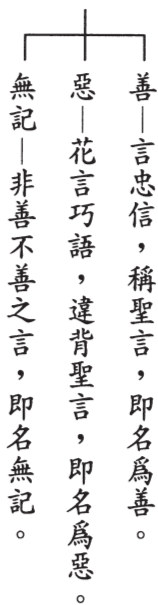 善—言忠信，稱聖言，即名爲善。
惡—花言巧語，違背聖言，即名爲惡。
無記—非善不善之言，即名無記。